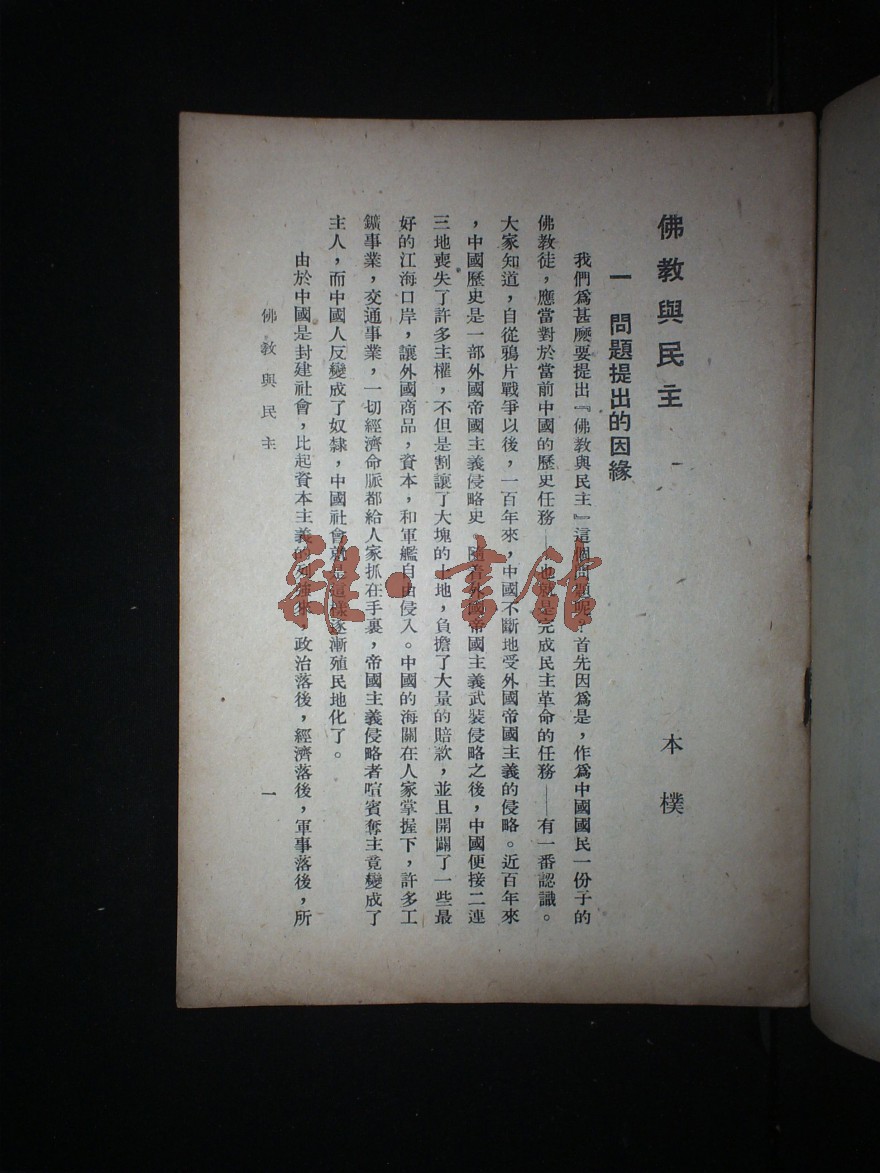 佛教與民主
本樸
一 問題提出的因緣
我們爲甚麽要提出『佛教與民主』這個問題呢？首先因爲是，作爲中國國民一份子的
佛教徒，應當對於當前中國的歷史任務——也就是完成民主革命的任務——有一番認識。
大家知道，自從鴉片戰爭以後，一百年來，中國不斷地受外國帝國主義的侵略。近百年來
，中國歷史是一部外國帝國主義侵略史。隨着外國帝國主義武裝侵略之後，中國便接二連
三地喪失了許多主權，不但是割讓了大塊的土地，負擔了大量的賠款，並且開闢了一些最
好的江海口岸，讓外國商品，資本，和軍艦自由侵入。中國的海關在人家掌握下，許多工
鑛事業，交通事業，一切經濟命脈都給人家抓在手裏，帝國主義侵略者喧賓奪主竟變成了
主人，而中國人反變成了奴隸，中國社會就是這樣逐漸殖民地化了。
由於中國是封建社會，比起資本主義的列強來，政治落後，經濟落後，軍事落後，所
佛教與民主
一
雜·書館